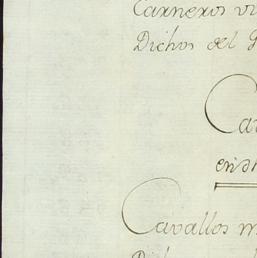 Carneros vi
Dichos del G
Ca
en
Cavallos m